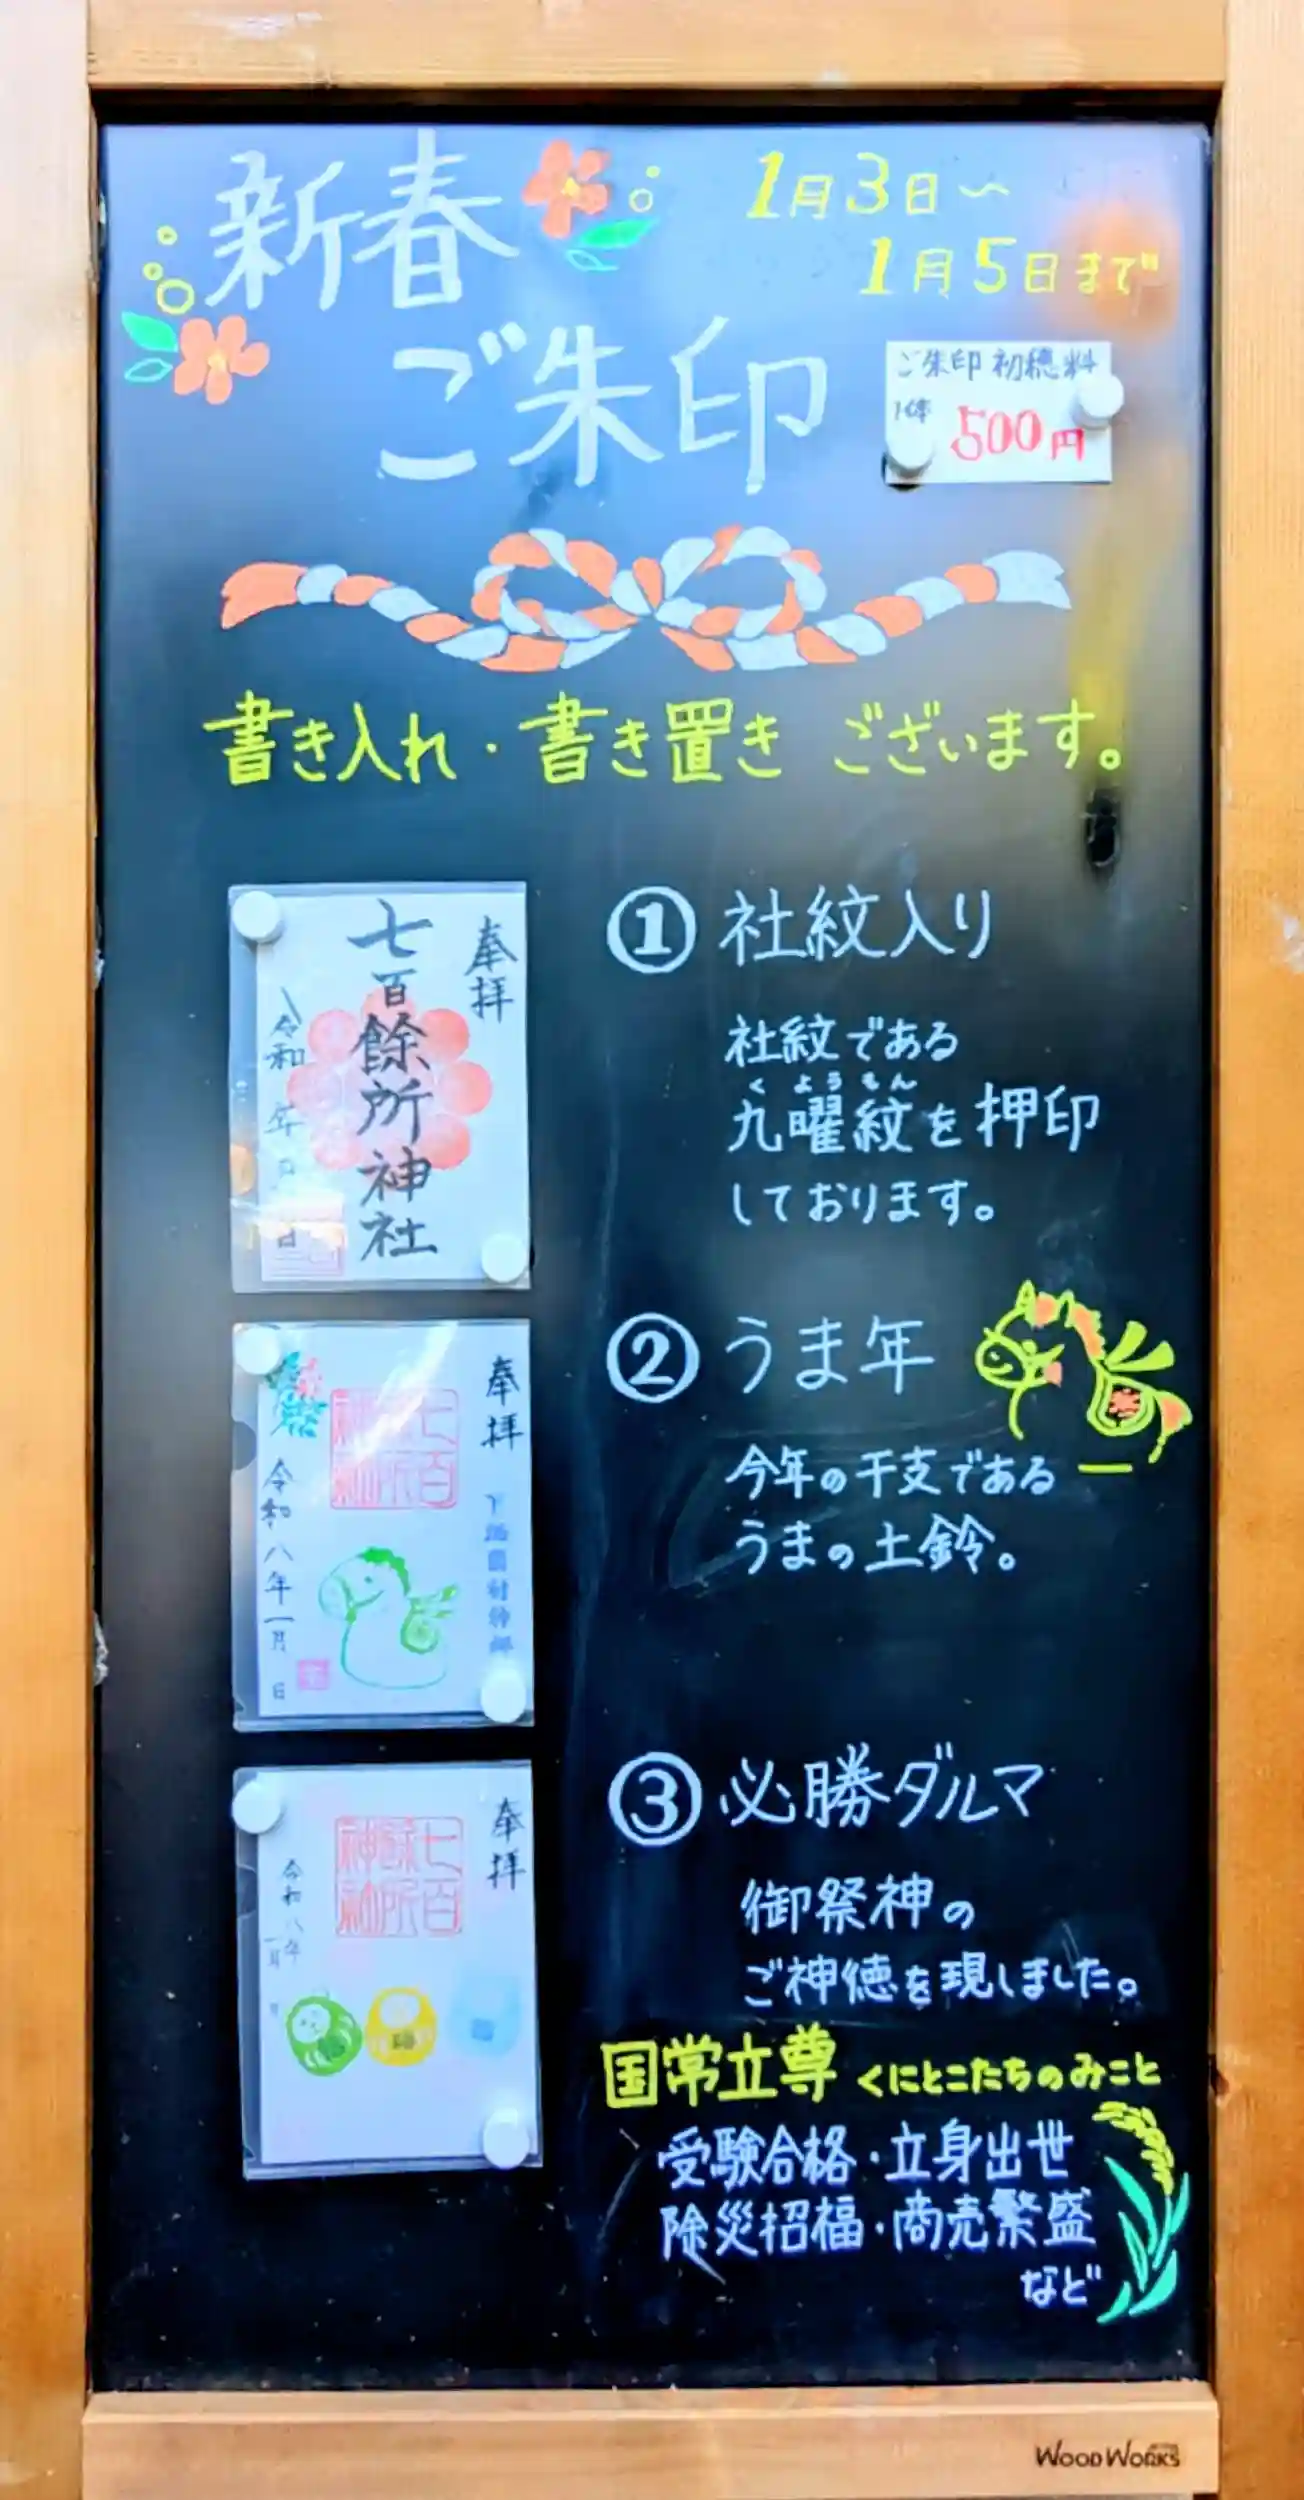 新春
ご朱印
1月3日〜
1月5日まで
ご朱印 初穂料
1体 500円
書き入れ・書き置き ございます。
奉拝
七百餘所神社
令和 年 月 日
① 社紋入り
社紋である
くようもん
九曜紋を押印
しております。
奉拝
七百餘所神社
令和八年一月 日
② うま年
今年の干支である
うまの土鈴。
奉拝
七百餘所神社
令和八年
一月 日
③ 必勝ダルマ
御祭神の
ご神徳を現しました。
国常立尊 くにとこたちのみこと
受験合格・立身出世
除災招福・商売繁盛
など
WOODWORKS